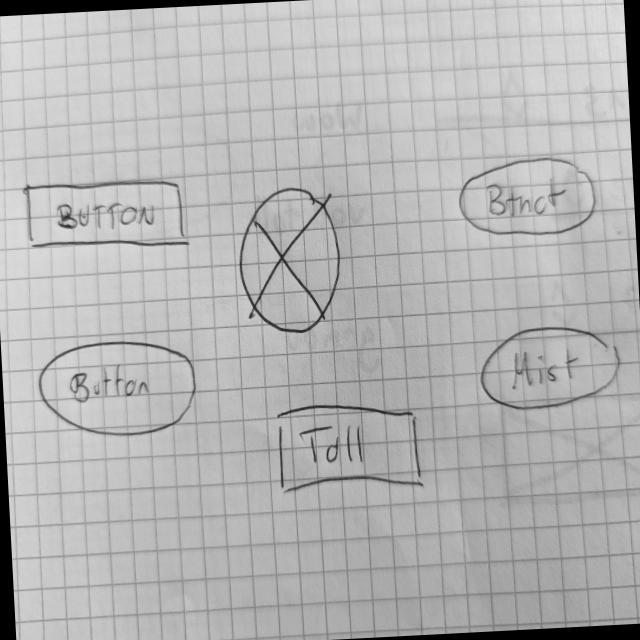 BUTTON
Btnot
Button
Mist
Toll